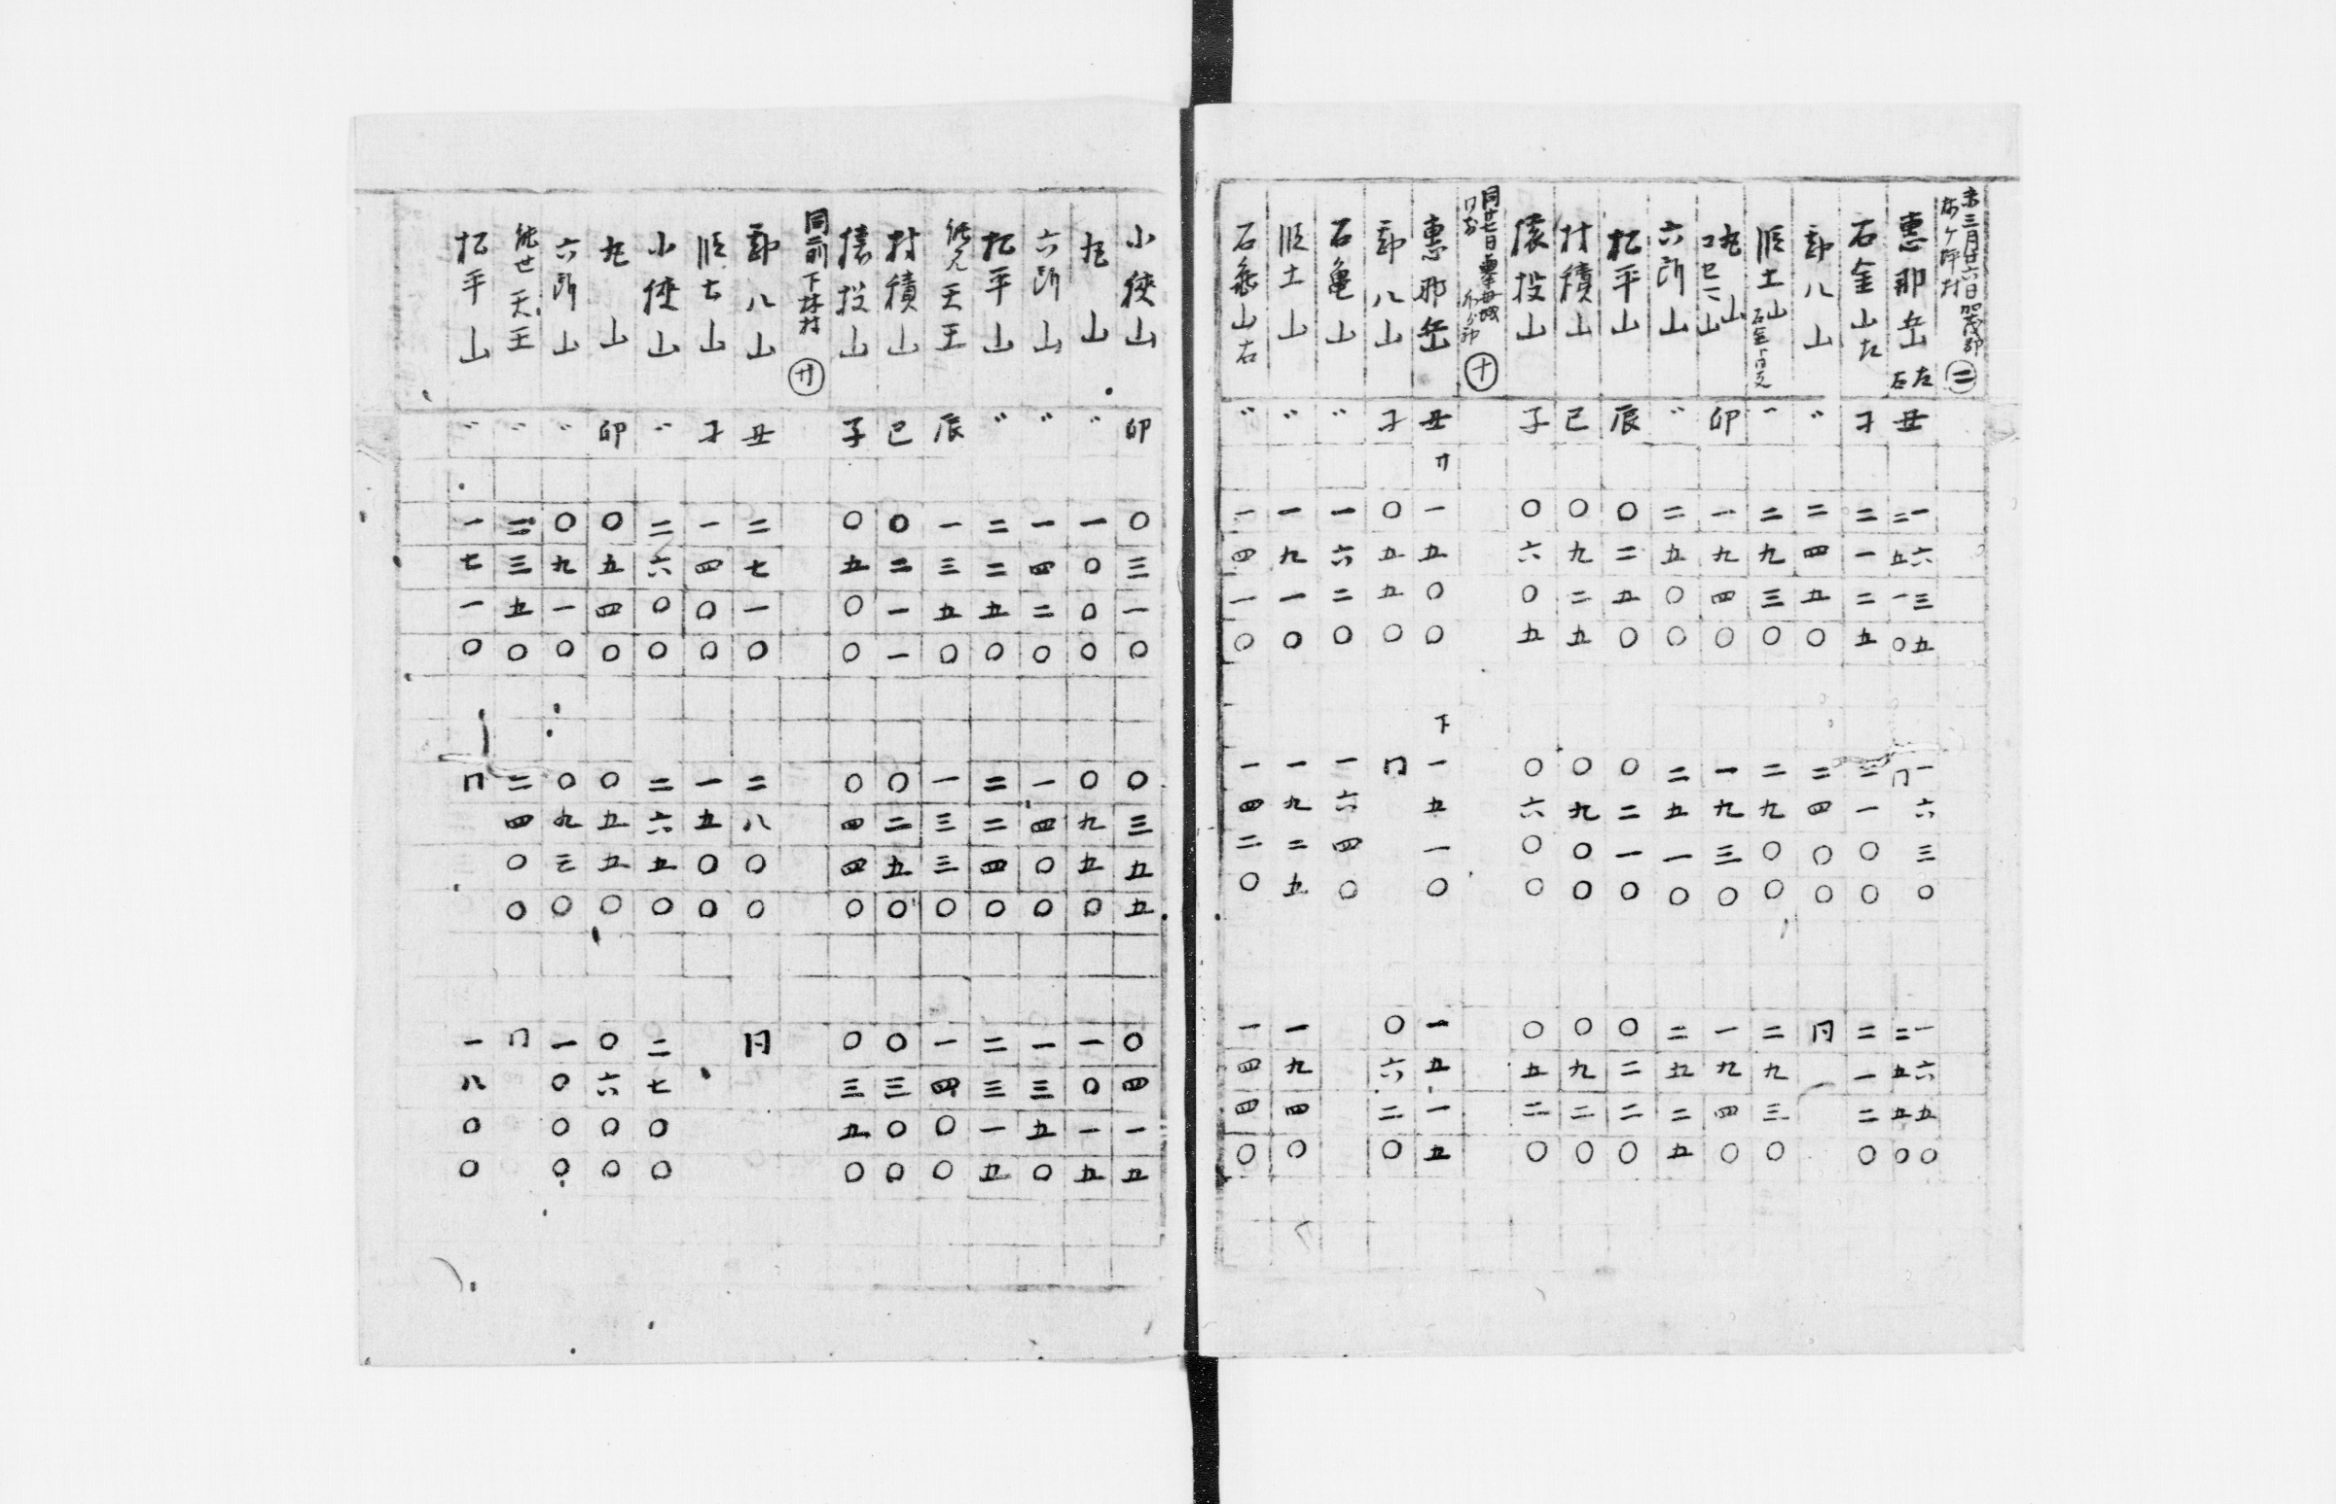 未三月廿六日加茂郡
ケ坪村 二
惠那岳 左右 丑 一六三五 二五一〇 一六三〇 冂 一六五〇 二五五〇
石金山左 子 二一二五 二一〇〇 二一二〇
郡八山 〃 二四五〇 二四〇〇 冂
順土山 〃 二九三〇 二九〇〇 二九三〇
丸山 卯 一九四〇 一九三〇 一九四〇
六所山 〃 二五〇〇 二五一〇 二五二五
松平山 辰 〇二五〇 〇二一〇 〇二二〇
村積山 巳 〇九二五 〇九〇〇 〇九二〇
猿投山 子 〇六〇五 〇六〇〇 〇五二〇
同廿七日 十
惠那岳 丑 廿 一五〇〇 下 一五一〇 一五一五
郡八山 子 〇五五〇 冂 〇六二〇
石亀山 〃 一六二〇 一六四〇
順土山 〃 一九一〇 一九二五 一九四〇
石亀山右 〃 一四一〇 一四二〇 一四四〇
小後山 卯 〇三一〇 〇三五五 〇四一五
丸山 〃 一〇〇〇 〇九五〇 一〇一五
六所山 〃 一四二〇 一四〇〇 一三五〇
松平山 〃 二二五〇 二二四〇 二三一五
天王 辰 一三五〇 一三三〇 一四〇〇
村積山 巳 〇二一一 〇二五〇 〇三〇〇
猿投山 子 〇五〇〇 〇四四〇 〇三五〇
同前 下林村 廿
郡八山 丑 二七一〇 二八〇〇 冂
順土山 子 一四〇〇 一五〇〇
小後山 〃 二六〇〇 二六五〇 二七〇〇
丸山 卯 〇五四〇 〇五五〇 〇六〇〇
六所山 〃 〇九一〇 〇九三〇 一〇〇〇
能世天王 〃 二三五〇 二四〇〇 冂
松平山 〃 一七一〇 冂 一八〇〇